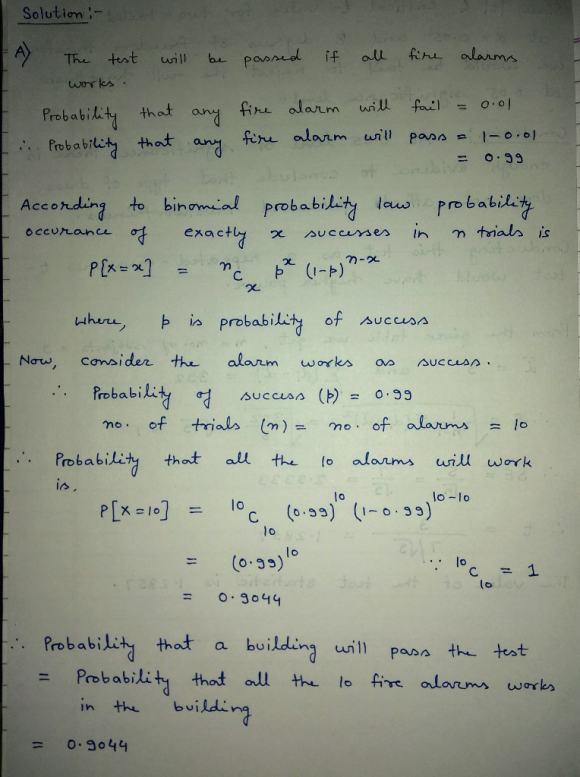 Solution :-
A) The test will be passed if all fire alarms
works.
Probability that any fire alarm will fail = 0.01
∴ Probability that any fire alarm will pass = 1-0.01
= 0.99
According to binomial probability law probability
occurance of exactly x successes in n trials is
P[X=x] = ⁿCₓ pˣ (1-p)ⁿ⁻ˣ
where, p is probability of success
Now, consider the alarm works as success.
∴ Probability of success (p) = 0.99
no. of trials (n) = no. of alarms = 10
∴ Probability that all the 10 alarms will work
is,
P[X=10] = ¹⁰C₁₀ (0.99)¹⁰ (1-0.99)¹⁰⁻¹⁰
= (0.99)¹⁰ ∵ ¹⁰C₁₀ = 1
= 0.9044
∴ Probability that a building will pass the test
= Probability that all the 10 fire alarms works
in the building
= 0.9044